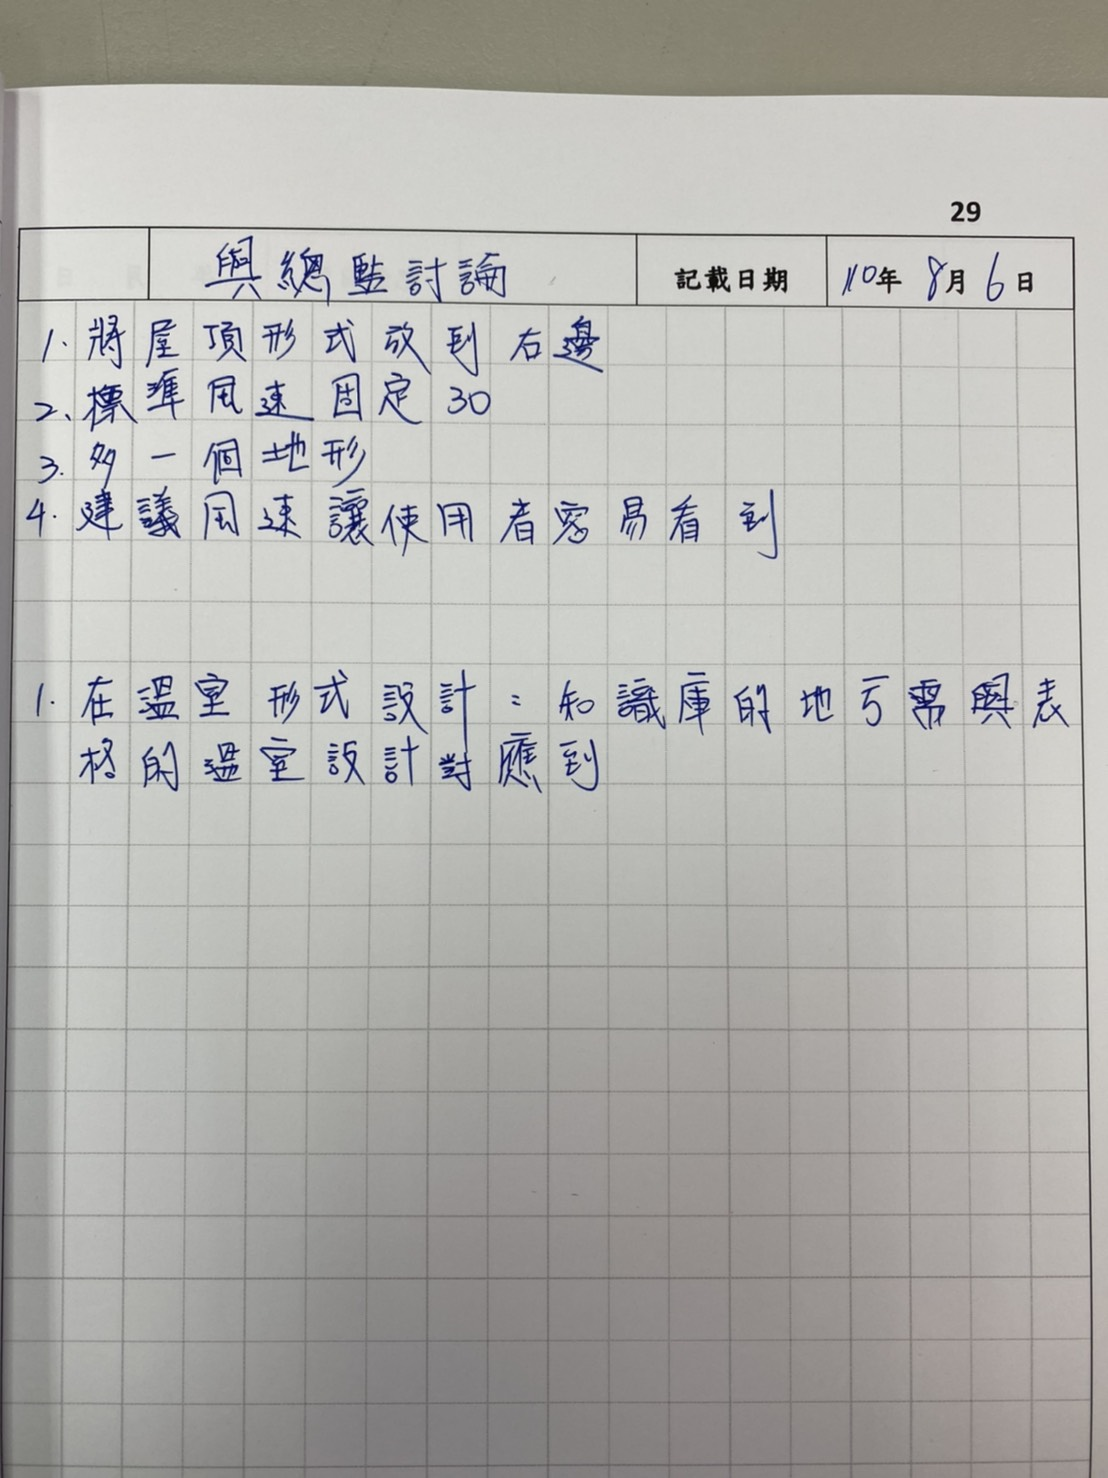 29
與總監討論 記載日期 110年8月6日
1. 將屋頂形式放到右邊
2、標準風速固定30
3. 多一個地形
4. 建議風速讓使用者容易看到
1. 在溫室形式設計:知識庫的地亏需與表
格的溫室設計對應到